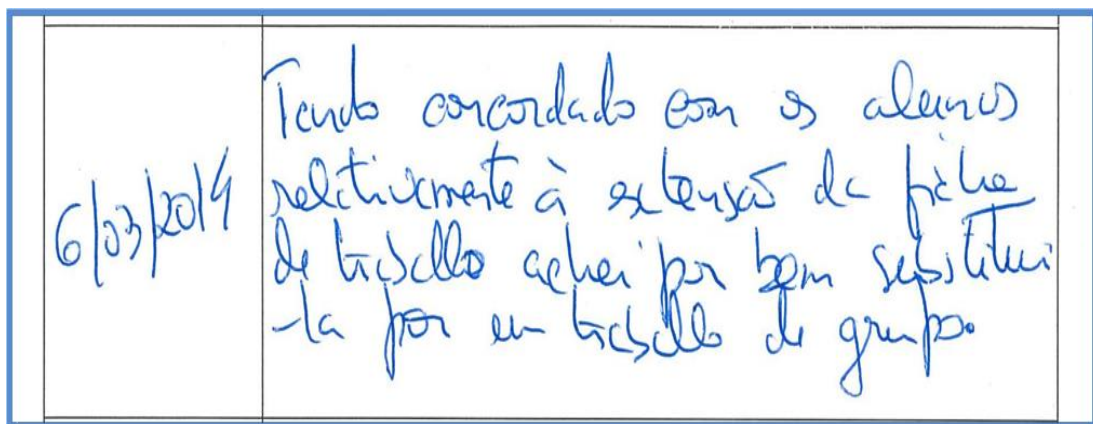 6/03/2014
Tendo concordado com os alunos
relativamente à extensão da ficha
de trabalho achei por bem substitui
-la por um trabalho de grupo.